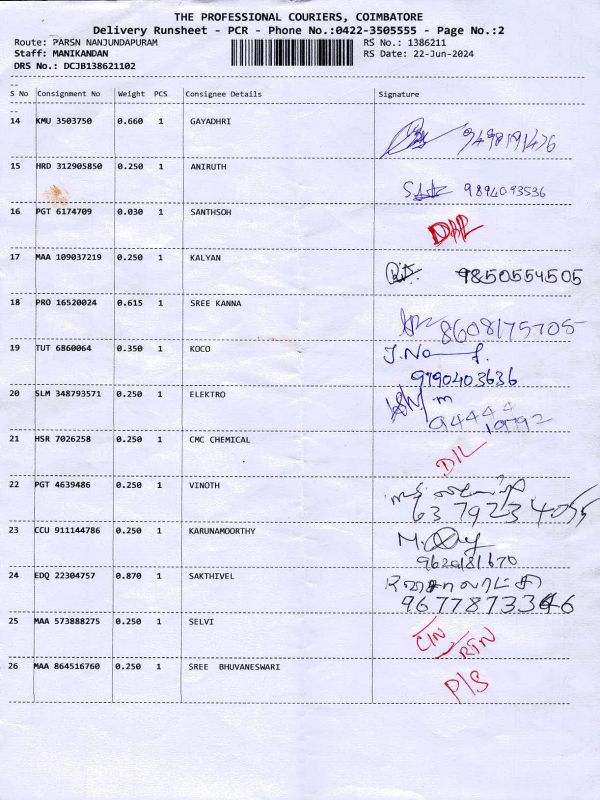 THE PROFESSIONAL COURIERS, COIMBATORE
Delivery Runsheet - PCR - Phone No.:0422-3505555 - Page No.:2
Route: PARSN NANJUNDAPURAM RS No.: 1386211
Staff: MANIKANDAN RS Date: 22-Jun-2024
DRS No.: DCJB138621102
S No Consignment No Weight PCS Consignee Details Signature
14 KMU 3503750 0.660 1 GAYADHRI 9498191476
15 HRD 312905850 0.250 1 ANIRUTH 9894093536
16 PGT 6174709 0.030 1 SANTHSOH
17 MAA 109037219 0.250 1 KALYAN 9850554505
18 PRO 16520024 0.615 1 SREE KANNA 8608175705
19 TUT 6860064 0.350 1 KOCO
9790403636
20 SLM 348793571 0.250 1 ELEKTRO
21 HSR 7026258 0.250 1 CMC CHEMICAL D/L
22 PGT 4639486 0.250 1 VINOTH
6379234055
23 CCU 911144786 0.250 1 KARUNAMOORTHY
9620181670
24 EDQ 22304757 0.870 1 SAKTHIVEL
9677873346
25 MAA 573888275 0.250 1 SELVI CIN/RTN
26 MAA 864516760 0.250 1 SREE BHUVANESWARI P/S